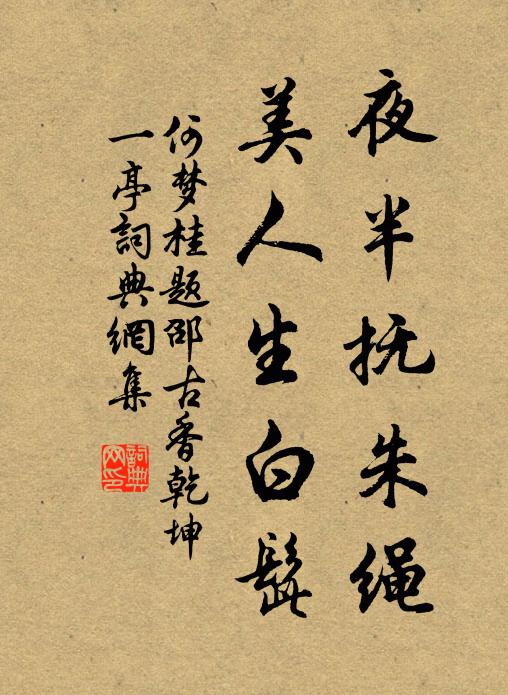 夜半抚朱绳
美人生白髭
何梦桂题邵古香乾坤
一亭詞典網集
詞典
网印